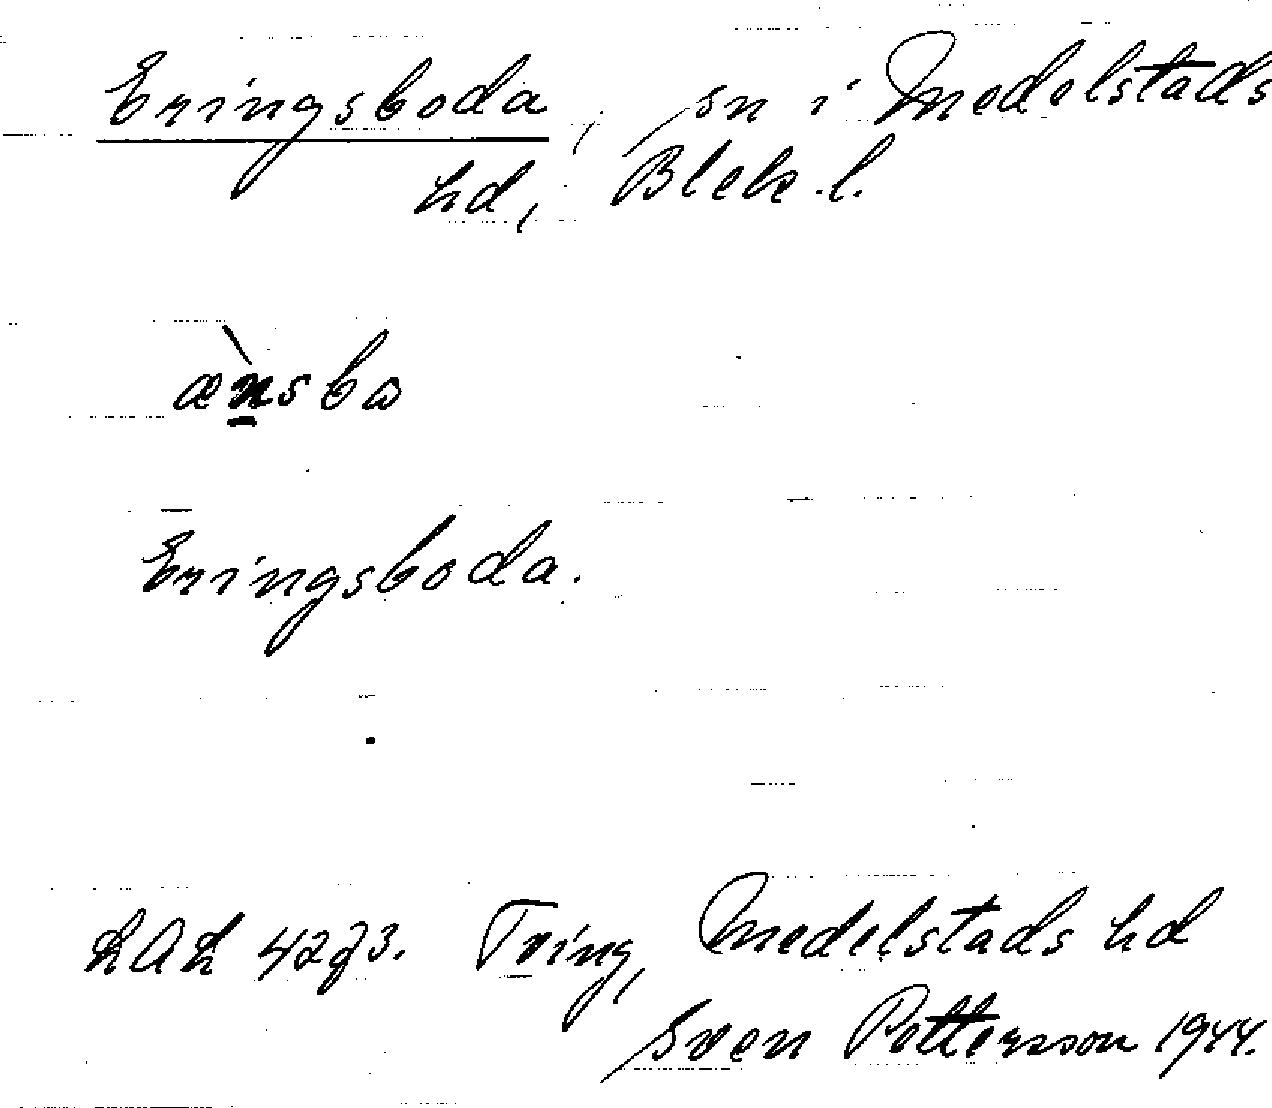 Eringsboda, sn i Medelstads
hd, Blek. l.
æ̀nsbo
Eringsboda.
LAL 4273. Tving, Medelstads hd
Sven Pettersson 1944.